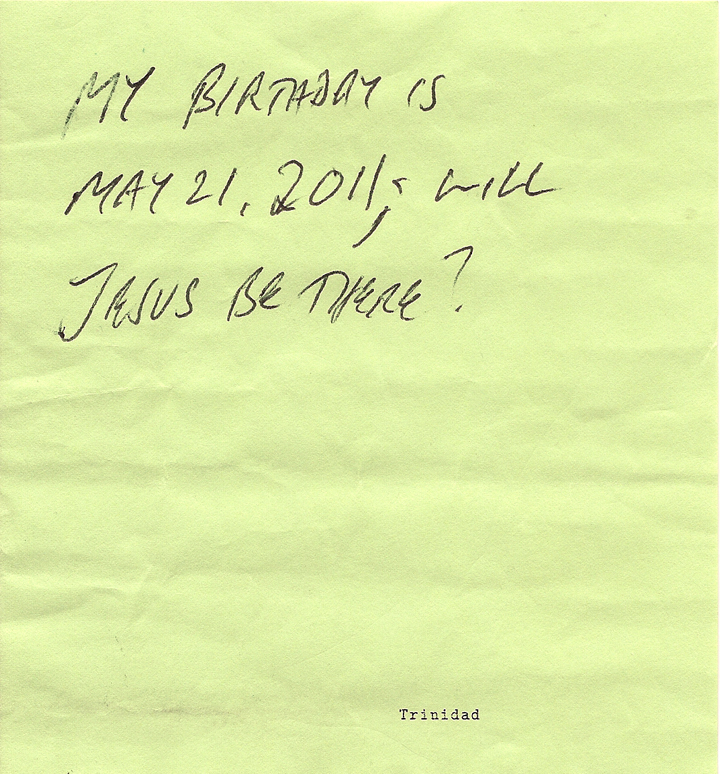 MY BIRTHDAY IS
MAY 21, 2011; WILL
JESUS BE THERE?
Trinidad